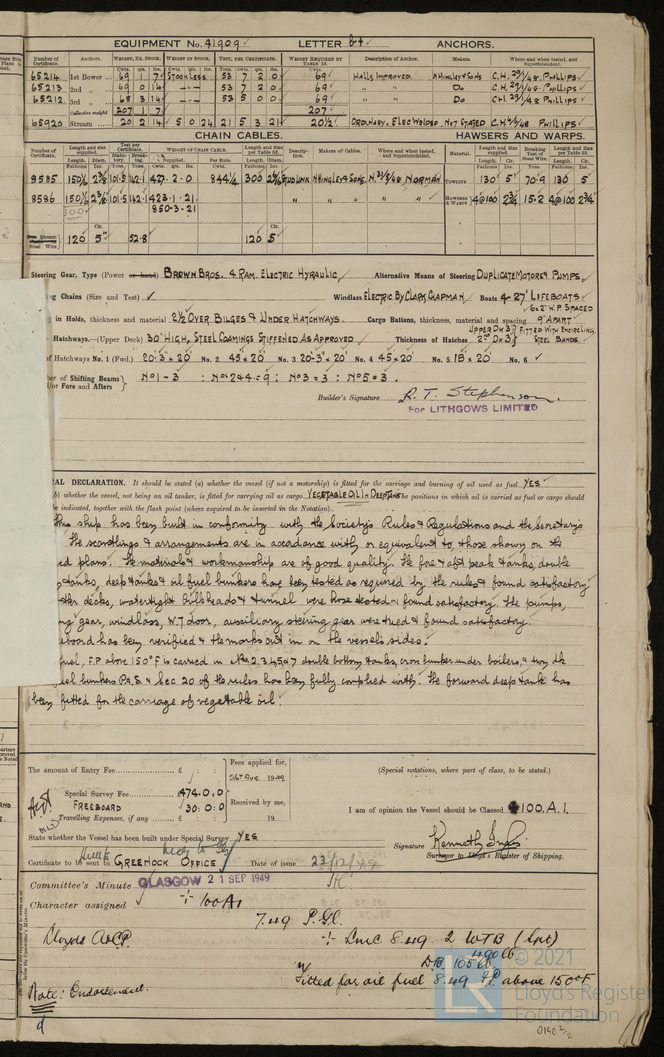 EQUIPMENT No. 41909 LETTER b† ANCHORS.
Number of Certificate. Anchors. WEIGHT, EX. STOCK. WEIGHT OF STOCK. TEST, PER CERTIFICATE. WEIGHT REQUIRED BY TABLE 53. Description of Anchor. Makers. Where and when tested, and Superintendent.
65214 1st Bower 69 1 7 STOCKLESS 53 7 2 0 69 HALLS IMPROVED N HINGLEY & SONS C.H. 29/1/48 PHILLIPS
65213 2nd „ 69 0 14 53 7 2 0 69 „ „ Do C.H. 29/1/48 PHILLIPS
65212 3rd „ 68 3 14 53 5 0 0 69 „ „ Do C.H. 29/1/48 PHILLIPS
Collective weight 207 1 7 207
65920 Stream 20 2 14 5 0 24 21 5 3 21 20½ ORDINARY. ELEC WELDED. NOT STATED PHILLIPS
CHAIN CABLES. HAWSERS AND WARPS.
Number of Certificate. Length and size supplied. Test per Certificate. WEIGHT OF CHAIN CABLE. Length and Size per Table 53. Description. Makers of Cables. Where and when tested, and Superintendent. Material. Length and Size supplied. Breaking Test of Steel Wire. Length and Size per Table 53.
9585 150 101.5 142.1 427. 2. 0 844¼ 300 STUD LINK N HINGLEY & SONS. NORMAN TOWLINE 130 5" 70.9 130 5"
8586 150 101.5 142.1 423. 1. 21. „ „ „ HAWSERS & WARPS 4@100 2¾ 15.2 4@100 2¾"
300 850-3-21
Stream Steel Wire 120 5" 52.8 120 5"
Steering Gear, Type (Power or hand) BROWN BROS. 4 RAM. ELECTRIC HYRAULIC Alternative Means of Steering DUPLICATE MOTORS & PUMPS.
Chains (Size and Test) Windlass ELECTRIC BY CLARK CHAPMAN Boats 4-27' LIFEBOATS
in Holds, thickness and material 2½ OVER BILGES & UNDER HATCHWAYS. Cargo Battens, thickness, material and spacing 6 x 2" W.P. SPACED 9" APART
Hatchways.—(Upper Deck) 30" HIGH, STEEL COAMINGS STIFFENED AS APPROVED Thickness of Hatches UPPER DK 3" 2ND DK 3" FITTED WITH ENCIRCLING STEEL BANDS.
of Hatchways No. 1 (Fwd.) 20'-3" x 20' No. 2 45 x 20' No. 3 20'-3" x 20' No. 4 45 x 20' No. 5 18 x 20' No. 6
of Shifting Beams or Fore and Afters No 1 - 3 : Nos 2 & 4 = 9 : No 3 = 3 : No 5 = 3.
Builder's Signature R. T. Stephenson.
FOR LITHGOWS LIMITED
DECLARATION. It should be stated (a) whether the vessel (if not a motorship) is fitted for the carriage and burning of oil used as fuel YES
(b) whether the vessel, not being an oil tanker, is fitted for carrying oil as cargo VEGETABLE OIL IN DEEPTANK The positions in which oil is carried as fuel or cargo should
be indicated, together with the flash point (where required to be inserted in the Notation).
This ship has been built in conformity with the Society's Rules & Regulations and the Secretary's
The scantlings & arrangements are in accordance with or equivalent to, those shown on the
plans. The materials & workmanship are of good quality. The fore & aft peak tanks, double
tanks, deep tanks & oil fuel bunkers have been tested as required by the rules & found satisfactory
decks, watertight bulkheads & tunnel were hose tested & found satisfactory. The pumps,
gear, windlass, W.T door, auxiliary steering gear were tried & found satisfactory.
has been verified & the marks cut in on the vessel's sides.
fuel, F.P. above 150°F is carried in Nos. 2.3.4.5 & 7 double bottom tanks, cross bunker under boilers, & dk
bunkers P. & S. & Sec 20 of the rules has been fully complied with. The forward deep tank has
been fitted for the carriage of vegetable oil.
The amount of Entry Fee £ : :
Special Survey Fee 474.0.0
FREEBOARD 30:0:0
Travelling Expenses, if any £ : :
Fees applied for, 26 AUG 1949
Received by me, 19
(Special notations, where part of class, to be stated.)
I am of opinion the Vessel should be Classed ✠100.A.1.
State whether the Vessel has been built under Special Survey YES
Signature Kenneth
Surveyor to Lloyd's Register of Shipping.
Certificate to be sent to GREENOCK OFFICE Date of issue 23/12/49
Committee's Minute GLASGOW 21 SEP 1949
Character assigned 100A1
7.49 P.Gl.
Lloyds A&CP. LMC 8.49 2 WTB (Spt)
D.B. 105 lb
Fitted for oil fuel 8.49 F.P. above 150°F
Note: Endorsement.
© 2021
Lloyd's Register
Foundation
0190 2/2